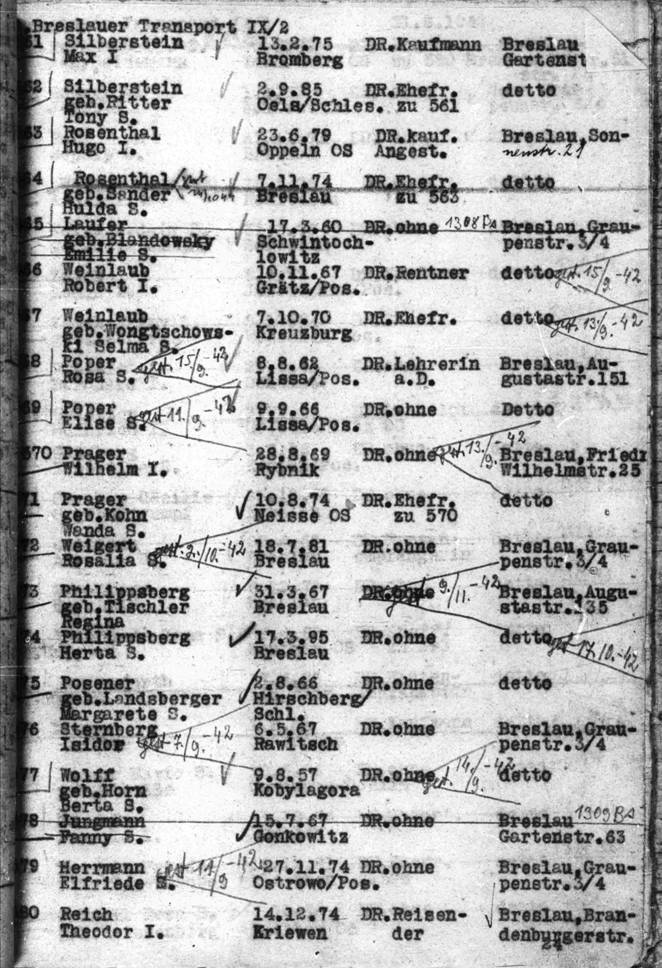 Breslauer Transport IX/2
61 Silberstein 13.2.75 DR.Kaufmann Breslau
Max I Bromberg Gartenst
62 Silberstein 2.9.85 DR.Ehefr. detto
geb.Ritter Oels/Schles. zu 561
Tony S.
63 Rosenthal 23.6.79 DR.kauf. Breslau,Son-
Hugo I. Oppeln OS Angest. nenstr.21
64 Rosenthal/ 7.11.74 DR.Ehefr. detto
geb.Sander Breslau zu 563
Hulda S.
65 Laufer 17.3.60 DR.ohne 1308 Breslau,Grau-
geb.Blandowsky Schwintoch- penstr.3/4
Emilie S. lowitz
66 Weinlaub 10.11.67 DR.Rentner detto gest. 15/9.-42
Robert I. Grätz/Pos.
67 Weinlaub 7.10.70 DR.Ehefr. detto gest. 13/9.-42
geb.Wongtschows- Kreuzburg
ki Selma S.
68 Poper gest. 15/9.-42 8.8.62 DR.Lehrerin Breslau,Au-
Rosa S. Lissa/Pos. a.D. gustastr.151
69 Poper gest 11./9.-42 9.9.66 DR.ohne Detto
Elise S. Lissa/Pos.
570 Prager 28.8.69 DR.ohne gest. 13./9.-42 Breslau,Friedr
Wilhelm I. Rybnik Wilhelmstr.25
71 Prager 10.8.74 DR.Ehefr. detto
geb.Kohn Neisse OS zu 570
Wanda S.
72 Weigert gest. 2./10.-42 18.7.81 DR.ohne Breslau,Grau-
Rosalia S. Breslau penstr.3/4
73 Philippsberg 31.3.67 DR.ohne gest 9./11.-42 Breslau,Augu-
geb.Tischler Breslau stastr.135
Regina
74 Philippsberg 17.3.95 DR.ohne detto gest 17.10.-42
Herta S. Breslau
75 Posener 2.8.66 DR.ohne detto
geb.Landsberger Hirschberg/
Margarete S. Schl.
76 Sternberg 6.5.67 DR.ohne Breslau,Grau-
Isidor gest 7./9.-42 Rawitsch penstr.3/4
77 Wolff 9.8.57 DR.ohne gest. 14./9.-42 detto
geb.Horn Kobylagora
Berta S.
78 Jungmann 15.7.67 DR.ohne Breslau 1309
Fanny S. Gonkowitz Gartenstr.63
79 Herrmann gest 11./9.-42 27.11.74 DR.ohne Breslau,Grau-
Elfriede S. Ostrowo/Pos. penstr.3/4
80 Reich 14.12.74 DR.Reisen- Breslau,Bran-
Theodor I. Kriewen der denburgerstr.
24